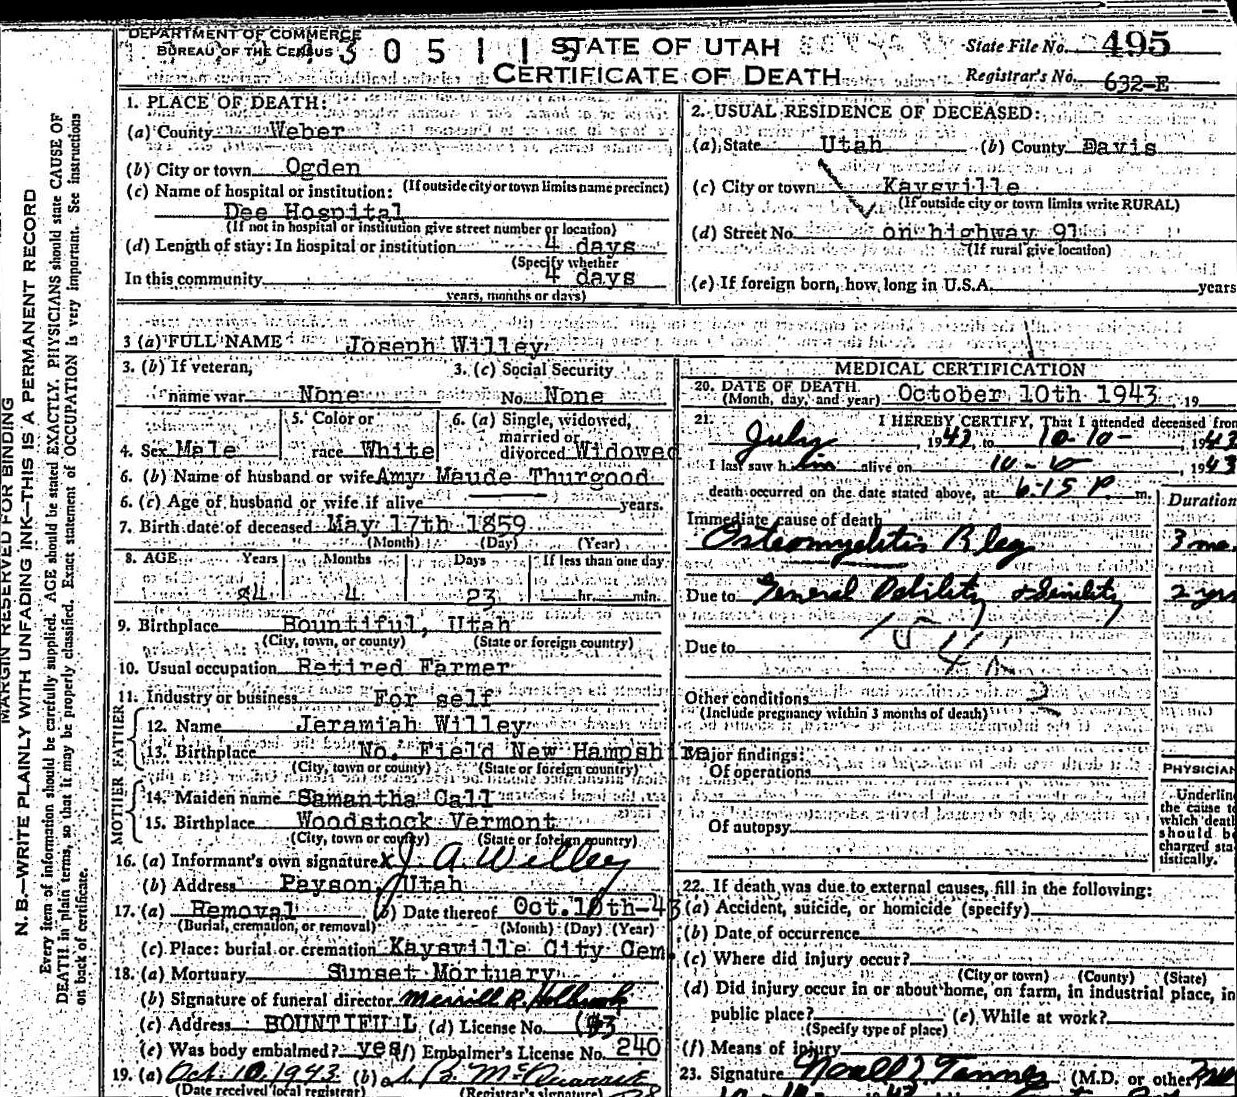 DEPARTMENT OF COMMERCE
BUREAU OF THE CENSUS
305119
STATE OF UTAH
CERTIFICATE OF DEATH
State File No. 495
Registrar's No. 632-E
MARGIN RESERVED FOR BINDING
N. B.—WRITE PLAINLY WITH UNFADING INK—THIS IS A PERMANENT RECORD
Every item of information should be carefully supplied. AGE should be stated EXACTLY. PHYSICIANS should state CAUSE OF
DEATH in plain terms, so that it may be properly classified. Exact statement of OCCUPATION is very important. See instructions
on back of certificate.
1. PLACE OF DEATH:
(a) County Weber
(b) City or town Ogden
(If outside city or town limits name precinct)
(c) Name of hospital or institution:
Dee Hospital
(If not in hospital or institution give street number or location)
(d) Length of stay: In hospital or institution 4 days
(Specify whether
In this community 4 days
years, months or days)
2. USUAL RESIDENCE OF DECEASED:
(a) State Utah (b) County Davis
(c) City or town Kaysville
(If outside city or town limits write RURAL)
(d) Street No. on highway 91
(If rural give location)
(e) If foreign born, how long in U.S.A. years
3 (a) FULL NAME Joseph Willey
3. (b) If veteran, 3. (c) Social Security
name war None No. None
4. Sex Male 5. Color or race White 6. (a) Single, widowed, married or divorced Widowed
6. (b) Name of husband or wife Amy Maude Thurgood
6. (c) Age of husband or wife if alive years.
7. Birth date of deceased May 17th 1859
(Month) (Day) (Year)
8. AGE Years Months Days If less than one day
84 4 23 hr. min.
9. Birthplace Bountiful, Utah
(City, town, or county) (State or foreign country)
10. Usual occupation Retired Farmer
11. Industry or business For self
FATHER
12. Name Jeramiah Willey
13. Birthplace No. Field New Hampshire
(City, town or county) (State or foreign country)
MOTHER
14. Maiden name Samantha Call
15. Birthplace Woodstock Vermont
(City, town or county) (State or foreign country)
16. (a) Informant's own signature x J. A. Willey
(b) Address Payson, Utah
17. (a) Removal (b) Date thereof Oct. 10th-43
(Burial, cremation, or removal) (Month) (Day) (Year)
(c) Place: burial or cremation Kaysville City Cem.
18. (a) Mortuary Sunset Mortuary
(b) Signature of funeral director Merrill R. Holbrook
(c) Address BOUNTIFUL (d) License No.
(e) Was body embalmed? yes (f) Embalmer's License No. 240
19. (a) Oct. 10, 1943 (b)
(Date received local registrar) (Registrar's signature)
MEDICAL CERTIFICATION
20. DATE OF DEATH October 10th 1943, 19
(Month, day, and year)
21. I HEREBY CERTIFY, That I attended deceased from
July 1942 to 10-10- 1943
I last saw him alive on 10-10, 1943
death occurred on the date stated above, at 6:15 P. m.
Duration
Immediate cause of death
Osteomyelitis R leg 3 mo.
Due to General Debility & Senility 2 yrs
Due to
Other conditions
(Include pregnancy within 3 months of death)
Major findings:
Of operations
Of autopsy
PHYSICIAN
Underline
the cause to
which death
should be
charged sta-
tistically.
22. If death was due to external causes, fill in the following:
(a) Accident, suicide, or homicide (specify)
(b) Date of occurrence
(c) Where did injury occur?
(City or town) (County) (State)
(d) Did injury occur in or about home, on farm, in industrial place, in
public place? (e) While at work?
(Specify type of place)
(f) Means of injury
23. Signature Noall Z Tanner (M.D. or other)